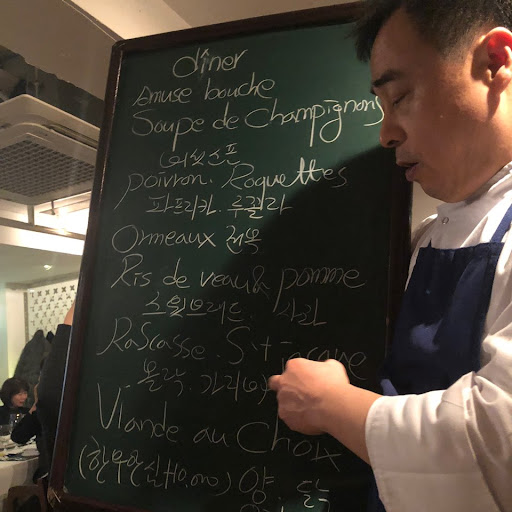 dîner
Amuse bouche
Soupe de Champignons
(버섯스프)
poivron. Roquettes
파프리카. 루꼴라
Ormeaux 전복
Ris de veau & pomme
스윗브레드. 사과
Rascasse. St-
쏠락. 가리비
Viande au Choix
(한우안심+10.000) 양.